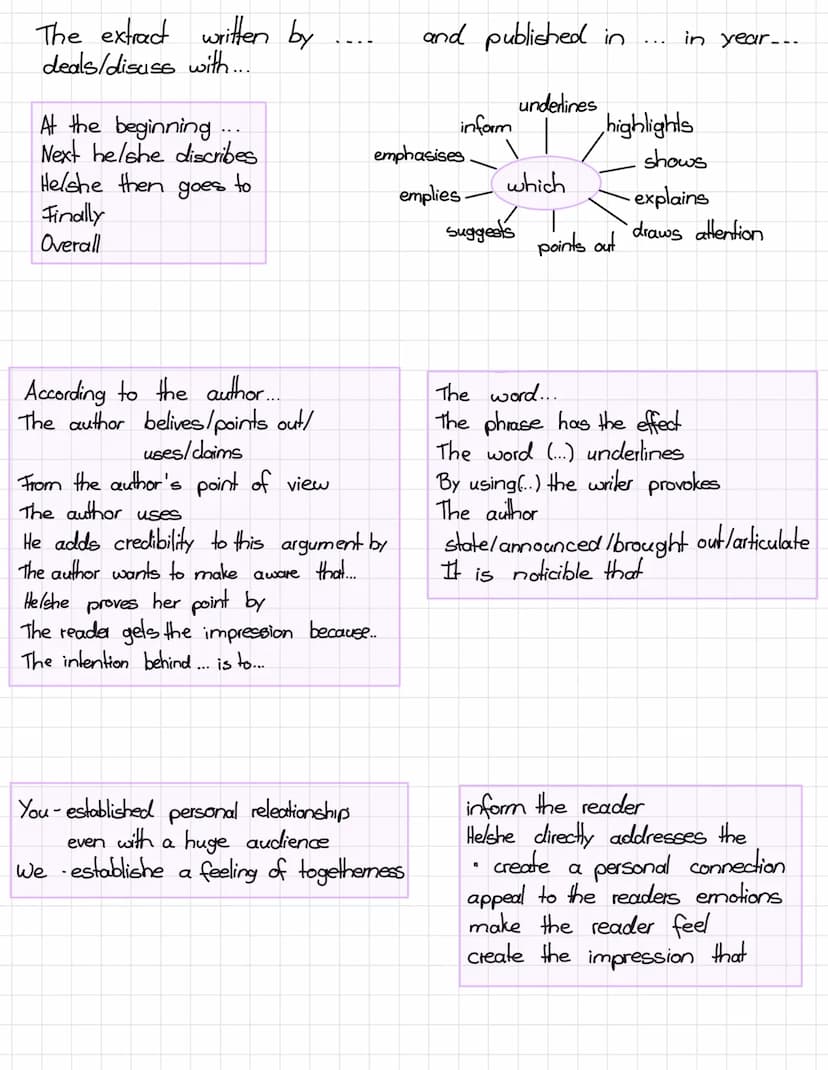 The extract written by .... and published in ... in year---
deals/disuss with...
At the beginning ...
Next he/she discribes
He/she then goes to
Finally
Overall
underlines
inform
highlights
emphasises
shows
which
emplies
explains
suggests
draws attention
points out
According to the author...
The author belives/points out/
uses/claims
From the author's point of view
The author uses
He adds credibility to this argument by
The author wants to make aware that...
He/she proves her point by
The reader gets the impression because..
The intention behind ... is to...
The word...
The phrase has the effect
The word (...) underlines
By using(..) the writer provokes
The author
state/announced/brought out/articulate
It is noticible that
You - established personal releationship
even with a huge audience
We - establishe a feeling of togetherness
inform the reader
He/she directly addresses the
• create a personal connection
appeal to the readers emotions
make the reader feel
create the impression that